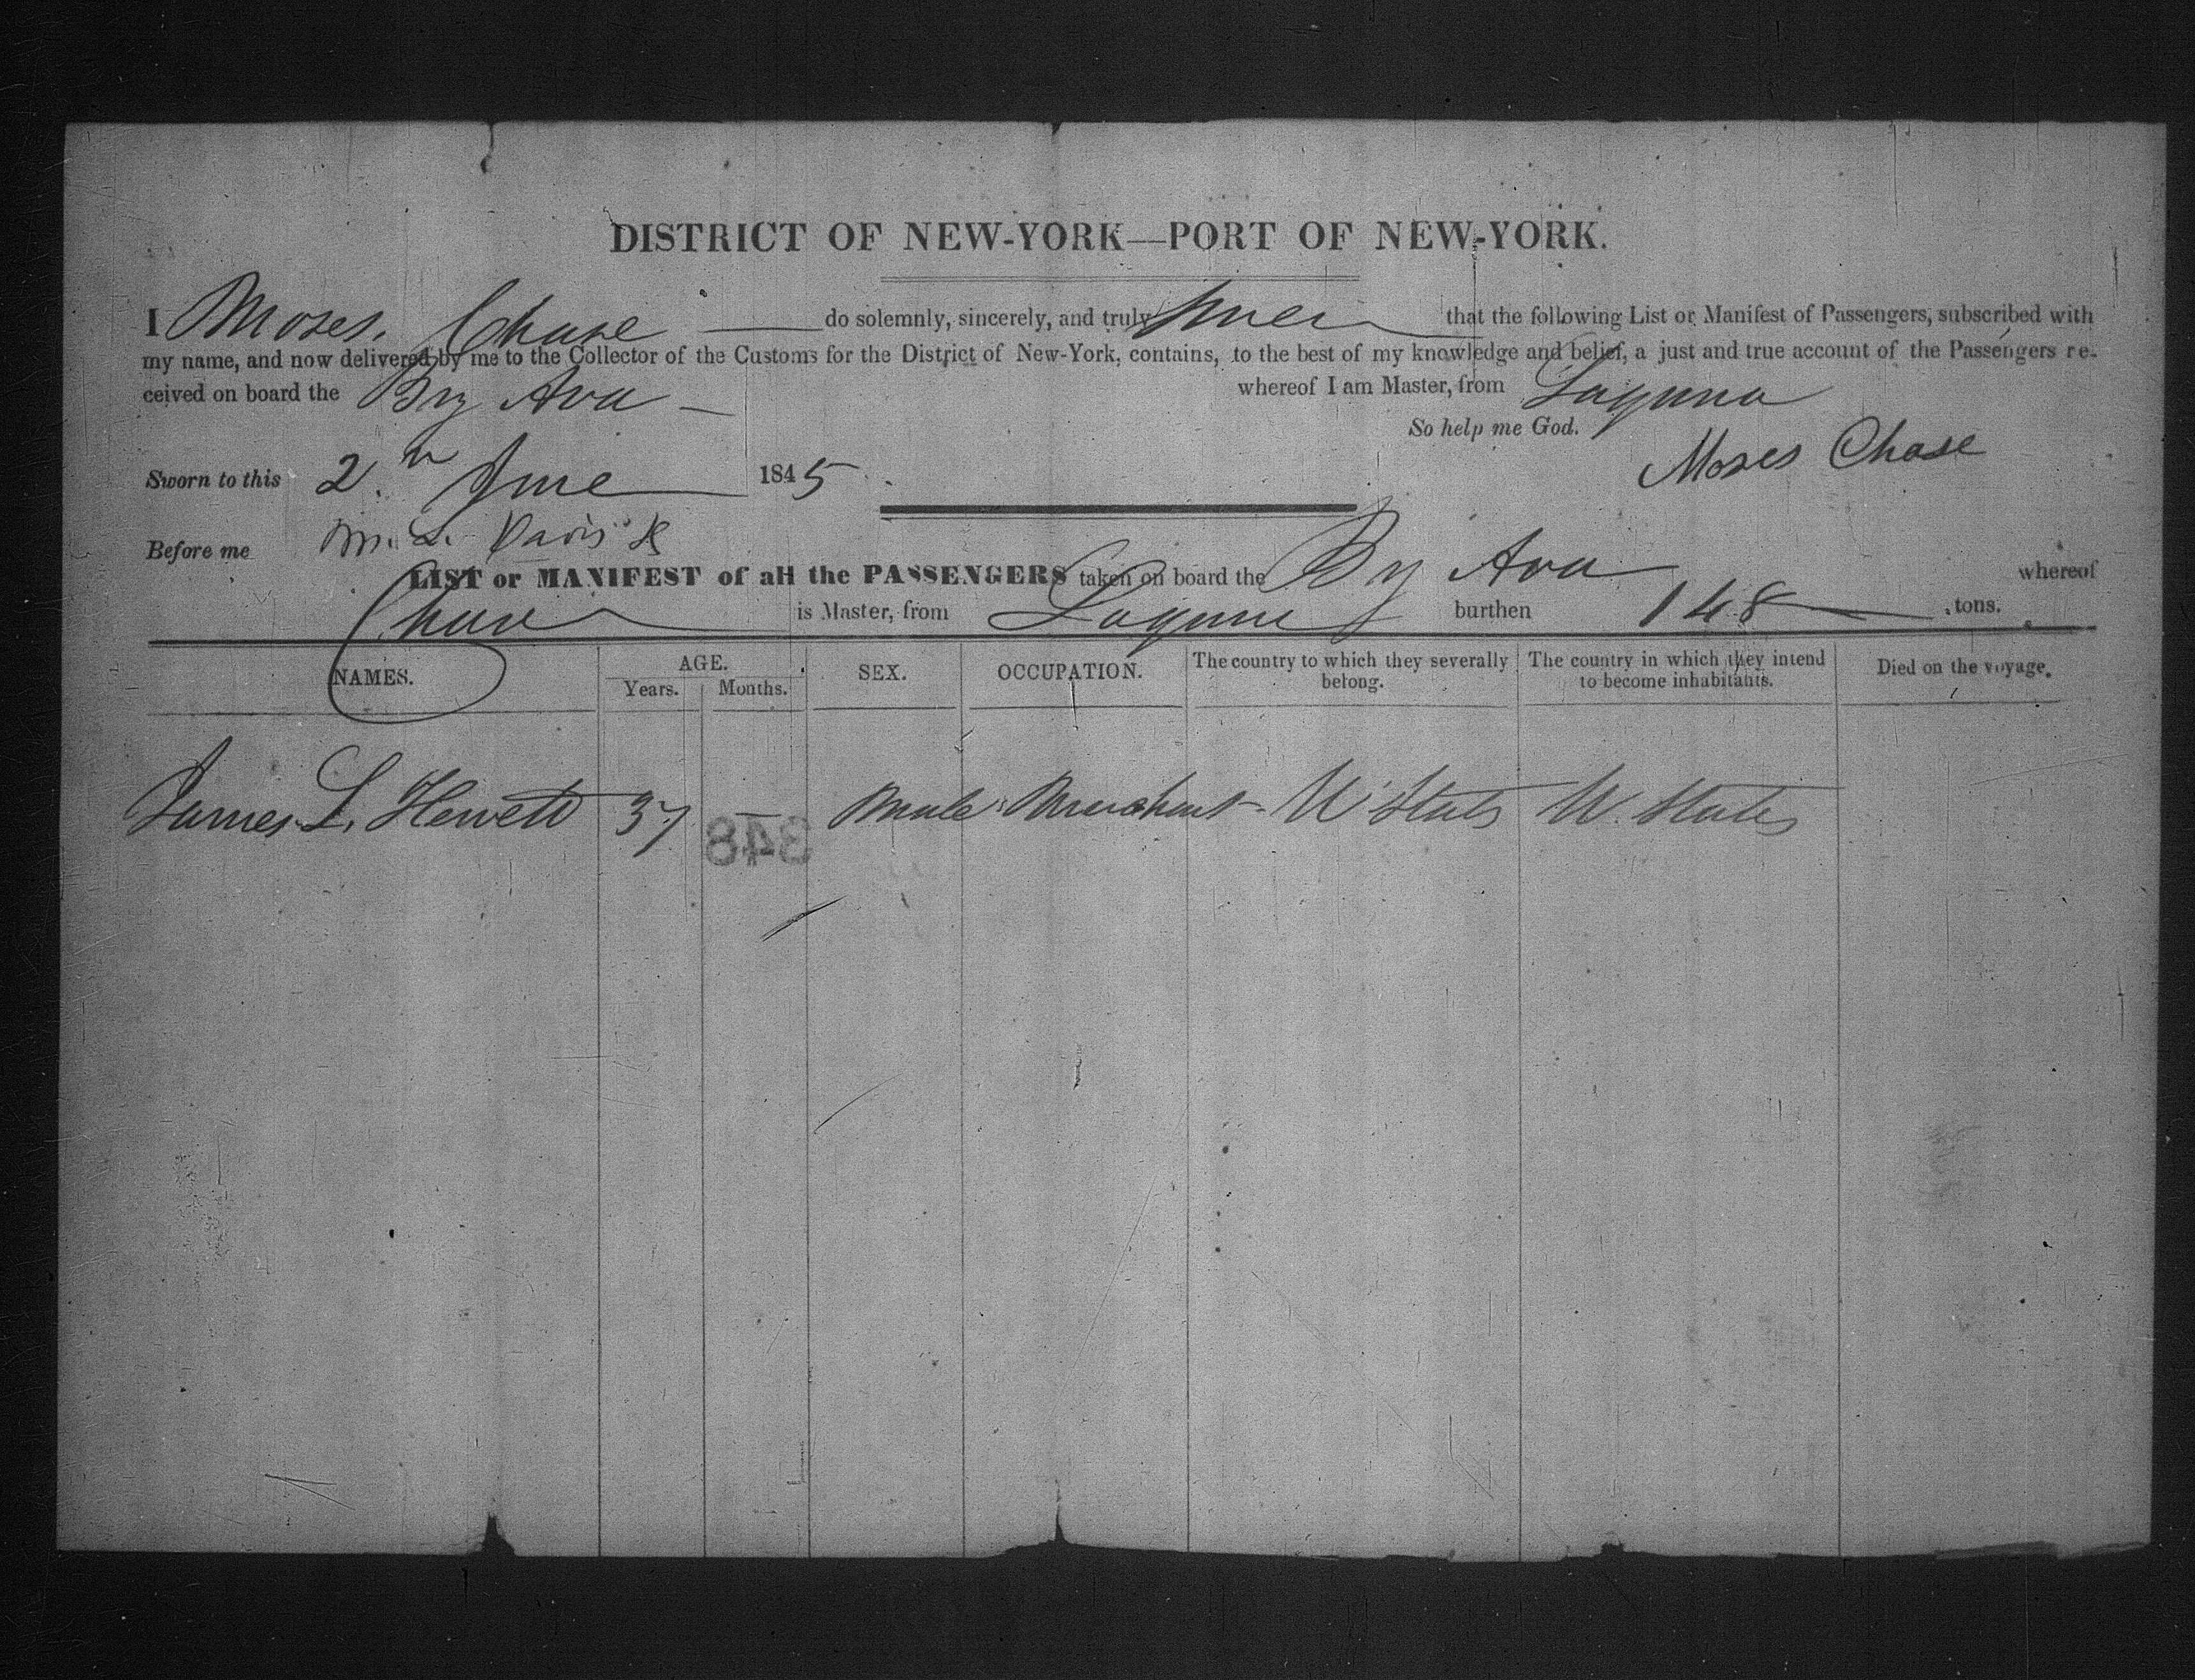 DISTRICT OF NEW-YORK—PORT OF NEW-YORK.
I Moses Chase do solemnly, sincerely, and truly swear that the following List or Manifest of Passengers, subscribed with
my name, and now delivered by me to the Collector of the Customs for the District of New-York, contains, to the best of my knowledge and belief, a just and true account of the Passengers re-
ceived on board the Brg Ava whereof I am Master, from Laguna
So help me God.
Moses Chase
Sworn to this 2 June 1845
Before me M. L. Davis Jr
LIST or MANIFEST of all the PASSENGERS taken on board the Brg Ava whereof
Chase is Master, from Laguna burthen 148 tons.
NAMES. AGE. Years. Months. SEX. OCCUPATION. The country to which they severally belong. The country in which they intend to become inhabitants. Died on the voyage.
James L. Hewett 37 — Male Merchant U States U. States
348